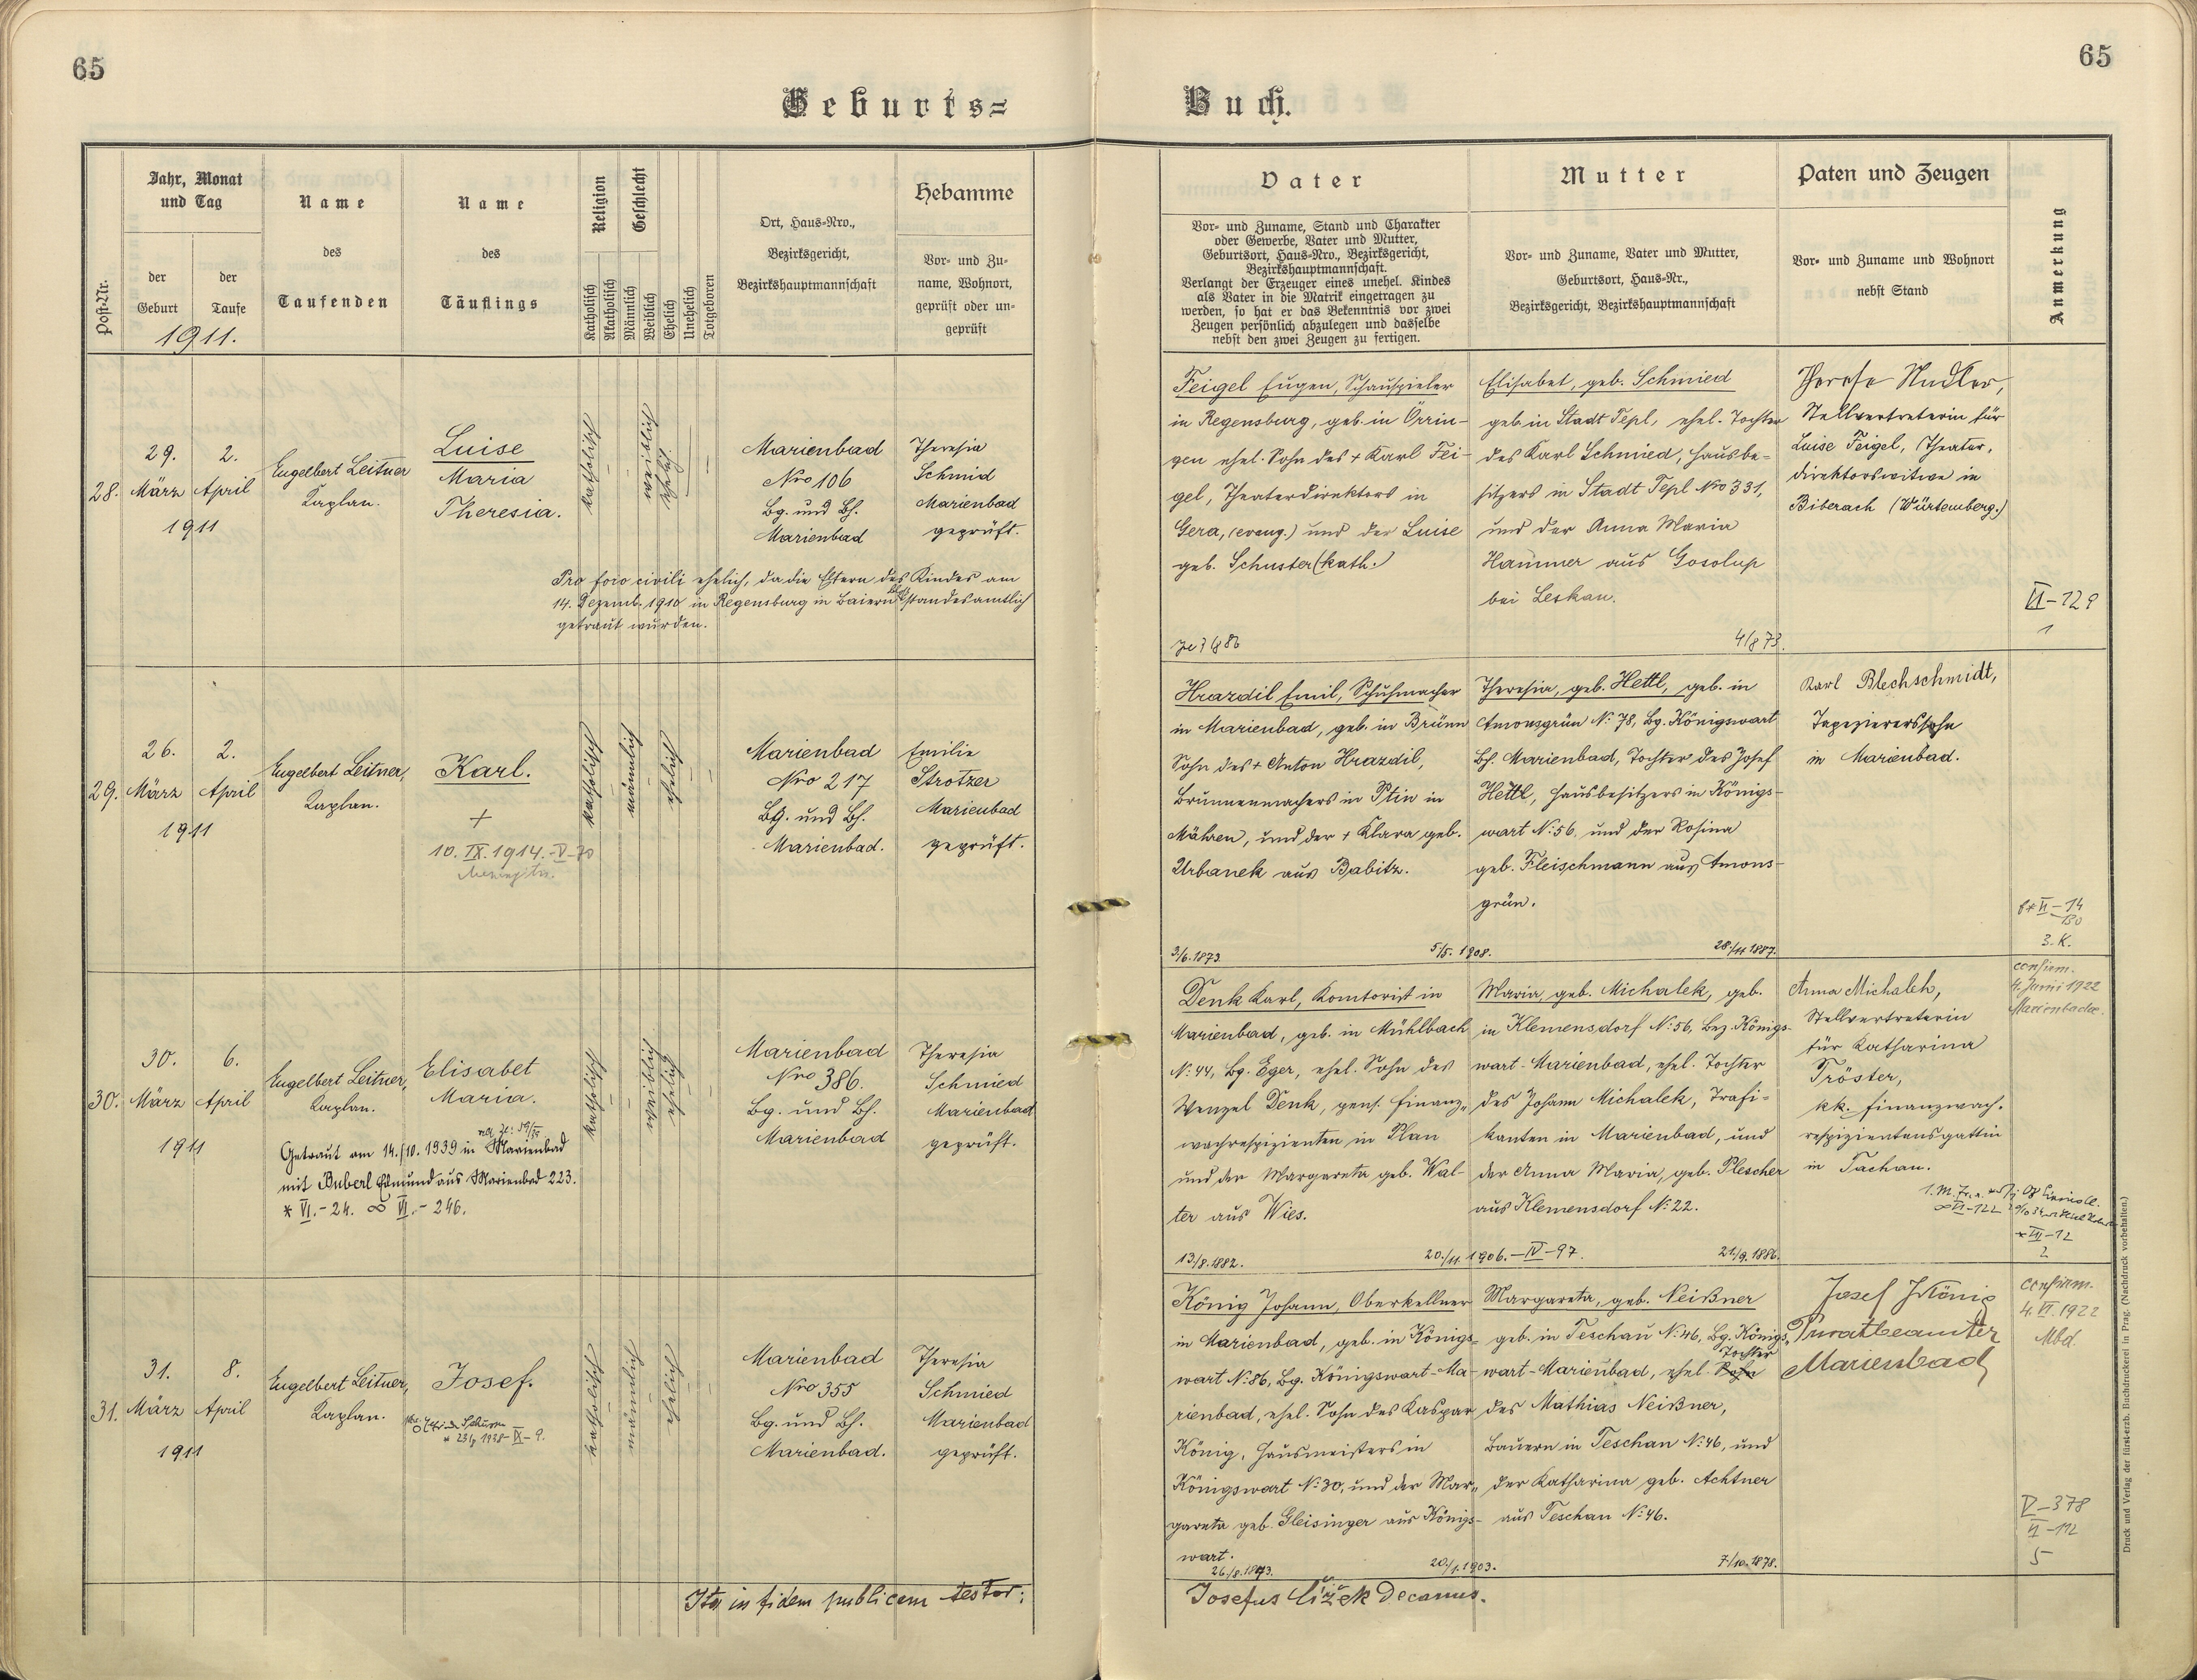 65
65
Geburts=
Buch.
Post-Nr.
Jahr, Monat
und Tag
der
Geburt
der
Taufe
1911.
Name
des
Taufenden
Name
des
Täuflings
Religion
Katholisch
Akatholisch
Geschlecht
Männlich
Weiblich
Ehelich
Unehelich
Totgeboren
Ort, Haus-Nro.,
Bezirksgericht,
Bezirkshauptmannschaft
Hebamme
Vor- und Zu-
name, Wohnort,
geprüft oder un-
geprüft
Vater
Vor- und Zuname, Stand und Charakter
oder Gewerbe, Vater und Mutter,
Geburtsort, Haus-Nro., Bezirksgericht,
Bezirkshauptmannschaft.
Verlangt der Erzeuger eines unehel. Kindes
als Vater in die Matrik eingetragen zu
werden, so hat er das Bekenntnis vor zwei
Zeugen persönlich abzulegen und dasselbe
nebst den zwei Zeugen zu fertigen.
Mutter
Vor- und Zuname, Vater und Mutter,
Geburtsort, Haus-Nr.,
Bezirksgericht, Bezirkshauptmannschaft
Paten und Zeugen
Vor- und Zuname und Wohnort
nebst Stand
Anmerkung
28.
29.
März
1911
2.
April
Engelbert Leitner
Kaplan.
Luise
Maria
Theresia.
katholisch
weiblich
ehelich
Marienbad
Nro 106
Bg. und Bh.
Marienbad
Theresia
Schmid
Marienbad
geprüft.
Pro foro civili ehelich, da die Eltern des Kindes am
14. Dezemb. 1910 in Regensburg in Baiern standesamtlich
getraut wurden.
Feigel Eugen, Schauspieler
in Regensburg, geb. in Örrin-
gen ehel. Sohn des + Karl Fei-
gel, Theaterdirektors in
Gera, (evang.) und der Luise
geb. Schuster (kath.)
Elisabet, geb. Schmied
geb. in Stadt Tepl, ehel. Tochter
des Karl Schmied, Hausbe-
sitzers in Stadt Tepl Nro 331,
und der Anna Maria
Hammer aus Gosolup
bei Leskau.
4/8 73.
Therese Nudler,
Stellvertreterin für
Luise Feigel, Theater-
direktorswitwe in
Biberach (Würtemberg.)
VI-129
1
29.
26.
März
1911
2.
April
Engelbert Leitner,
Kaplan.
Karl.
+
10. IX. 1914.-V-70
katholisch
männlich
ehelich
Marienbad
Nro 217
Bg. und Bh.
Marienbad.
Emilie
Strotzer
Marienbad
geprüft.
Hrazdil Emil, Schuhmacher
in Marienbad, geb. in Brünn
Sohn des + Anton Hrazdil,
Brunnenmachers in Ptin in
Mähren, und der + Klara geb.
Urbanek aus Babitz.
3/6.1873.
5/5. 1908.
Theresia, geb. Hettl, geb. in
Amonsgrün N: 78, Bg. Königswart
Bh. Marienbad, Tochter des Josef
Hettl, Hausbesitzers in Königs-
wart N: 56. und der Rosina
geb. Fleischmann aus Amons-
grün.
28./11 1887.
Karl Blechschmidt,
Tapezierersohn
in Marienbad.
3. K.
30.
30.
März
1911
6.
April
Engelbert Leitner,
Kaplan.
Elisabet
Maria.
Getraut am 14./10. 1939 in Marienbad
mit Buberl Edmund aus Marienbad 223.
* VI.- 24. ∞ VI.- 246.
katholisch
weiblich
ehelich
Marienbad
Nro 386.
Bg. und Bh.
Marienbad
Theresia
Schmied
Marienbad
geprüft.
Denk Karl, Komtorist in
Marienbad, geb. in Mühlbach
N: 44, Bg. Eger, ehel. Sohn des
Wenzel Denk, pens. Finanz-
wachrespizienten in Plan
und der Margareta geb. Wal-
ter aus Wies.
13/8.1882.
20./11 1906.-IV-97.
Maria, geb. Michalek, geb.
in Klemensdorf N: 56, Bez. Königs-
wart-Marienbad, ehel. Tochter
des Johann Michalek, Trafi-
kanten in Marienbad, und
der Anna Maria, geb. Plescher
aus Klemensdorf N: 22.
21/9. 1886.
Anna Michalek,
Stellvertreterin
für Katharina
Tröster,
kk. Finanzwach-
respizientensgattin
in Tachau.
confirm.
4. Juni 1922
Marienbadae.
* VII-12
2
31.
31.
März
1911
8.
April
Engelbert Leitner,
Kaplan.
Josef.
katholisch
männlich
ehelich
Marienbad
Nro 355
Bg. und Bh.
Marienbad.
Theresia
Schmied
Marienbad
geprüft.
König Johann, Oberkellner
in Marienbad, geb. in Königs-
wart N: 86, Bg. Königswart-Ma-
rienbad, ehel. Sohn des Kaspar
König, Hausmeisters in
Königswart N: 30, und der Mar-
gareta geb. Gleisinger aus Königs-
wart.
20/1.1903.
Margareta, geb. Neißner
geb. in Teschau N: 46, Bg. Königs-
wart-Marienbad, ehel. Sohn Tochter
des Mathias Neißner,
Bauern in Teschau N: 46, und
der Katharina geb. Achtner
aus Teschau N: 46.
7/10.1878.
Josef König
Privatbeamter
Marienbad
confirm.
4. VI. 1922
Mbd.
V-378
VI-112
5
Ita in fidem publicam testor:
Josefus Čížek Decanus.
Druck und Verlag der fürst-erzb. Buchdruckerei in Prag. (Nachdruck vorbehalten.)